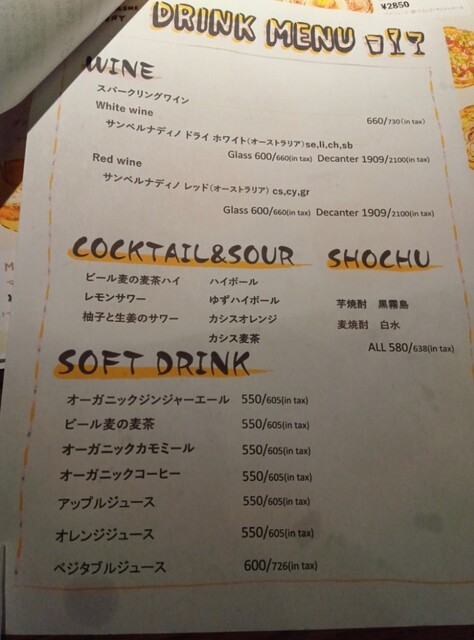 ¥2850
DRINK MENU
WINE
スパークリングワイン
660/730(in tax)
White wine
サンベルナディノ ドライ ホワイト(オーストラリア)se,li,ch,sb
Glass 600/660(in tax) Decanter 1909/2100(in tax)
Red wine
サンベルナディノ レッド(オーストラリア) cs,cy,gr
Glass 600/660(in tax) Decanter 1909/2100(in tax)
COCKTAIL&SOUR
ビール麦の麦茶ハイ
レモンサワー
柚子と生姜のサワー
ハイボール
ゆずハイボール
カシスオレンジ
カシス麦茶
SHOCHU
芋焼酎 黒霧島
麦焼酎 白水
ALL 580/638(in tax)
SOFT DRINK
オーガニックジンジャーエール 550/605(in tax)
ビール麦の麦茶 550/605(in tax)
オーガニックカモミール 550/605(in tax)
オーガニックコーヒー 550/605(in tax)
アップルジュース 550/605(in tax)
オレンジジュース 550/605(in tax)
ベジタブルジュース 600/726(in tax)